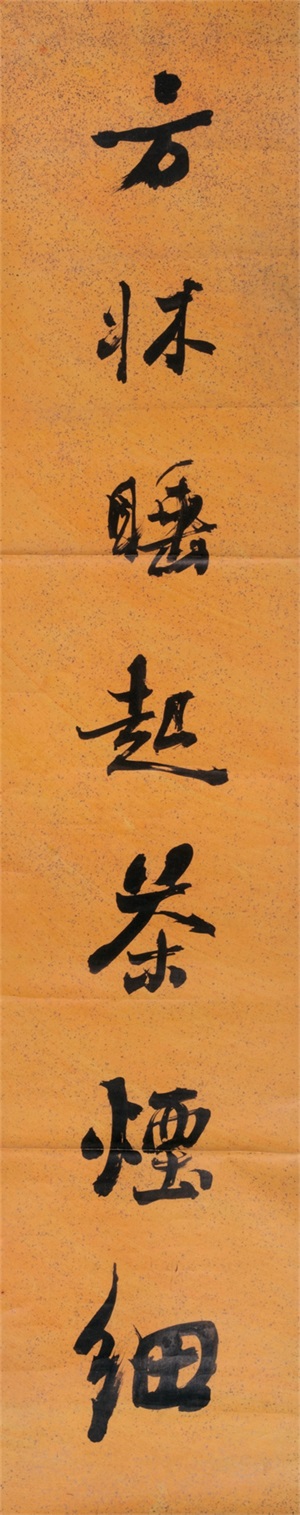 方牀睡起茶煙細